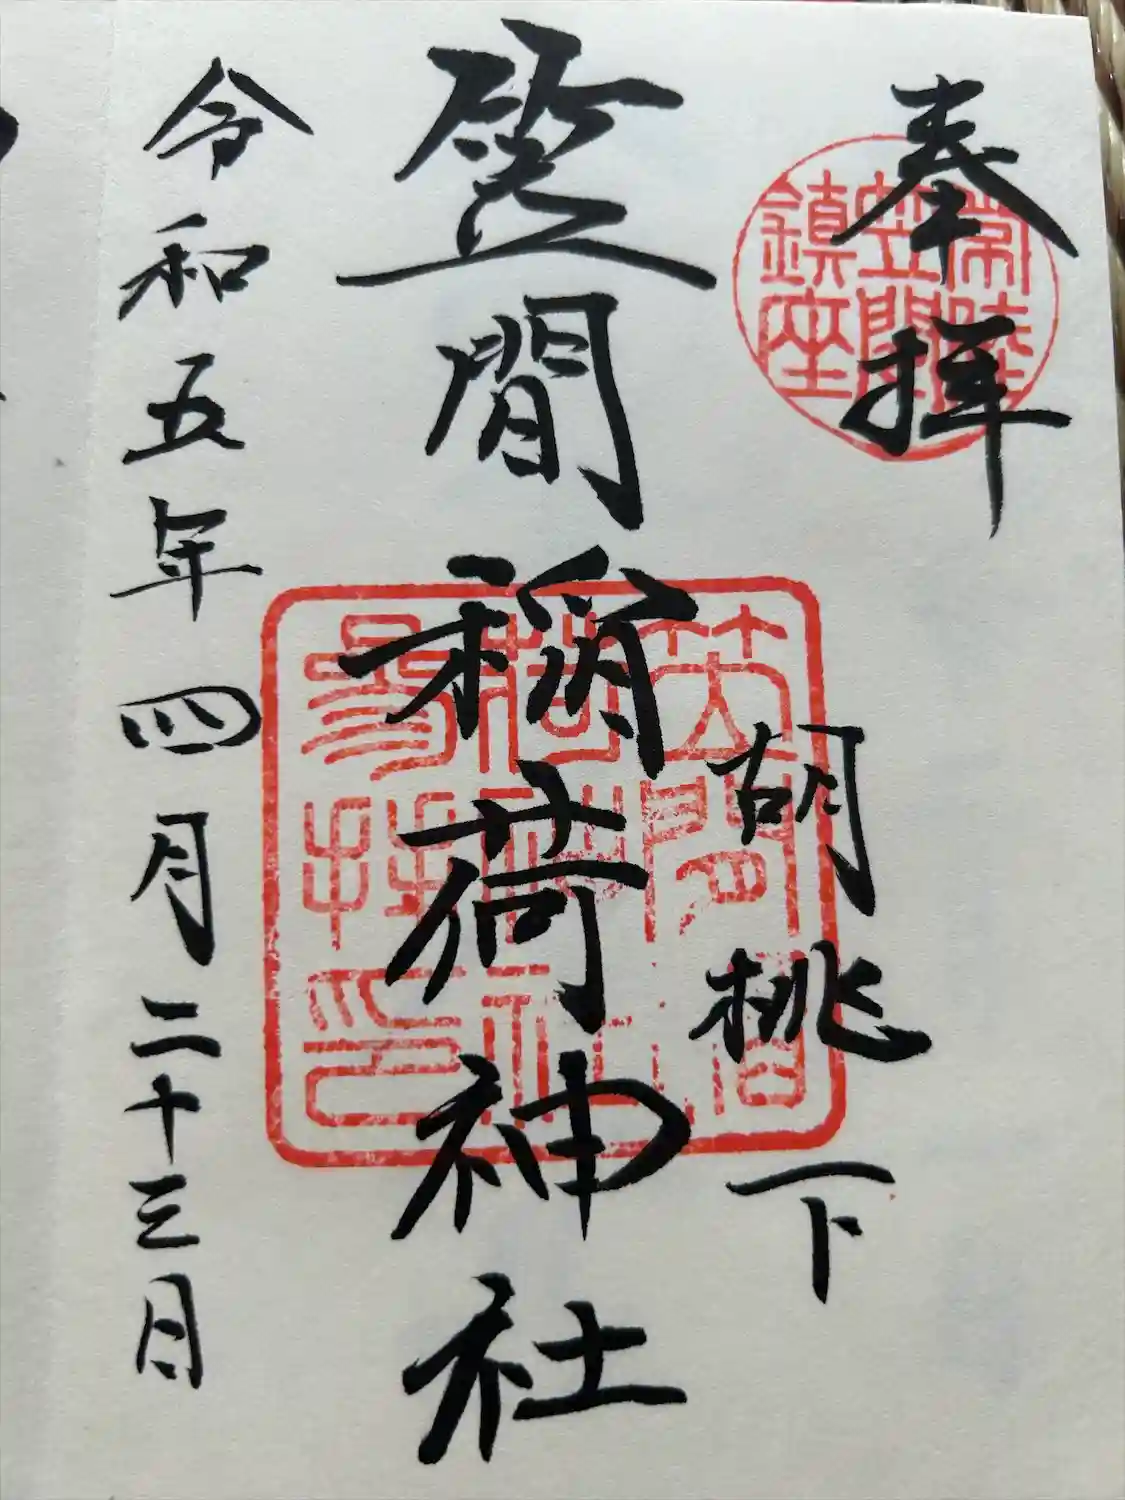 奉拝
常陸
笠間
鎮座
胡桃下
笠間稲荷神社
笠間稲
荷神社
参拝印
令和五年四月二十三日